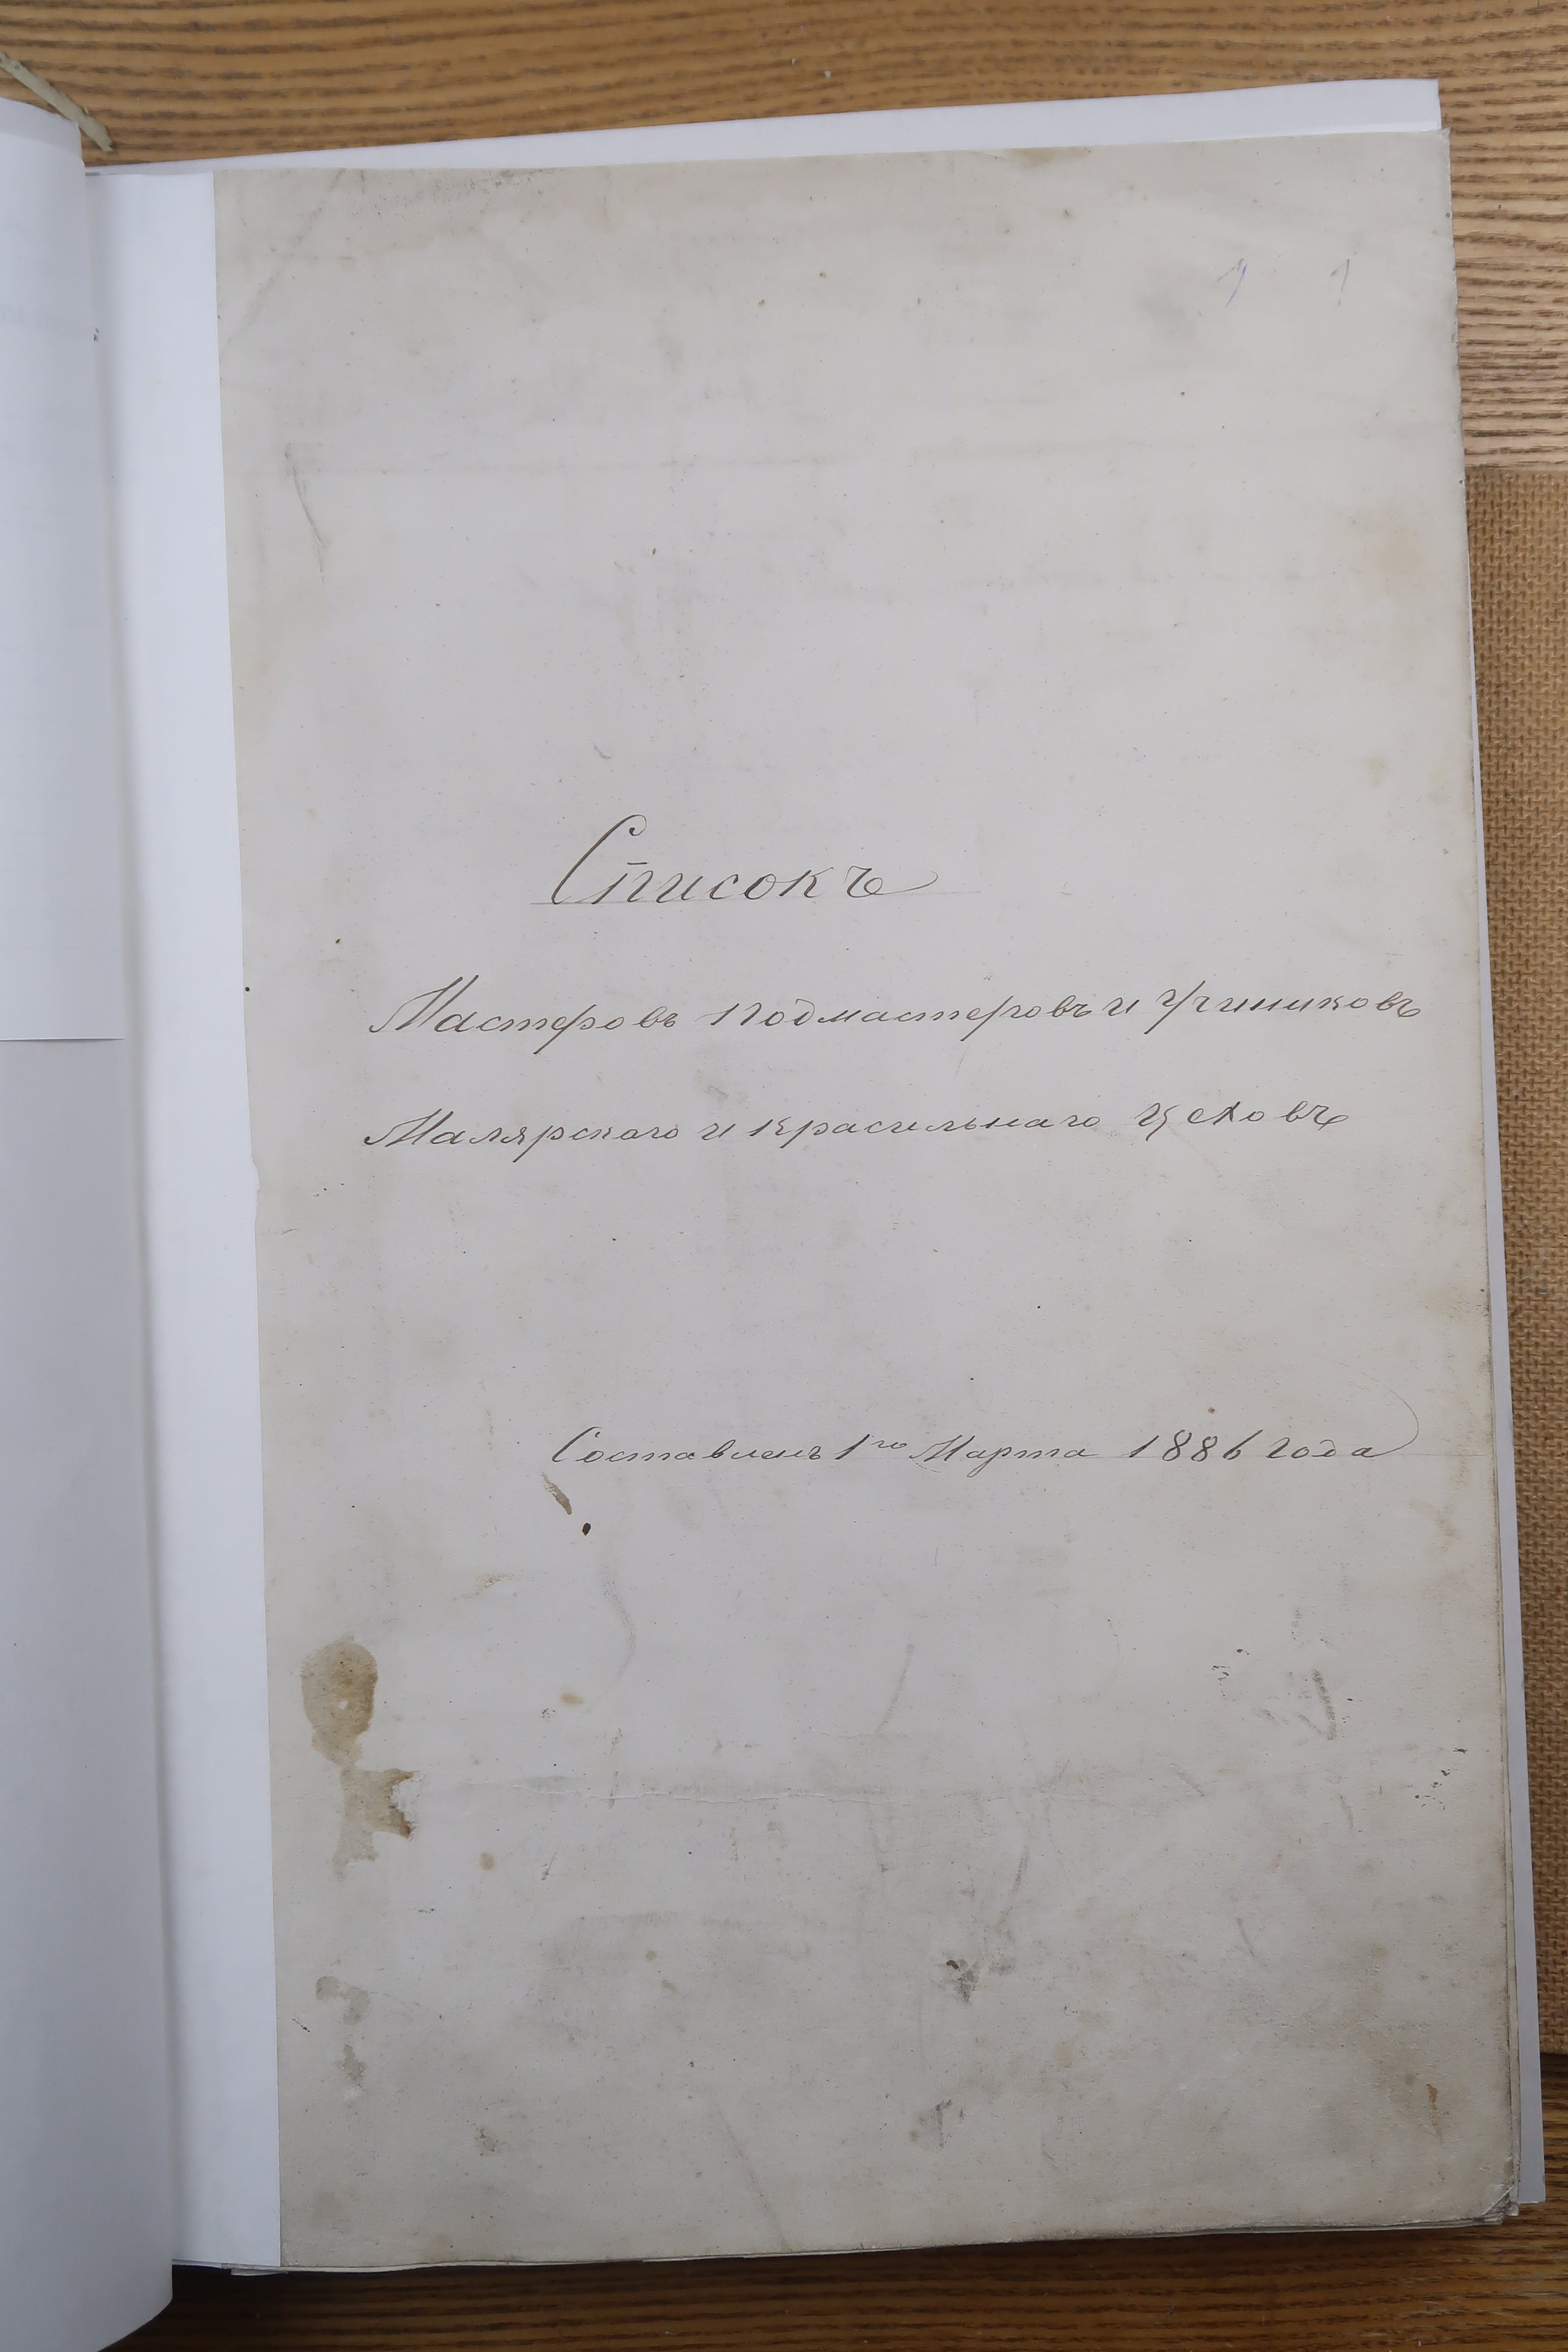 1 1
Списокъ
Мастеровъ подмастеровъ и Учиниковъ
Малярскаго и красильнаго цеховъ
Составленъ 1го Марта 1886 года